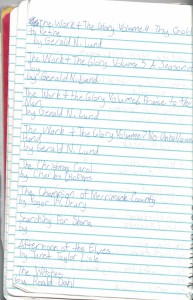 The Work & The Glory Volume 4 Thy Gold
to Refine
by Gerald N. Lund
The Work & The Glory Volume 5 A Season of
by Gerald N. Lund
The Work & The Glory Volume 6 Praise to the
Man
by Gerald N. Lund
The Work & The Glory Volume 7 No Unhallowed
Hand
by Gerald N. Lund
The Christmas Carol
by Charles Dickens
The Champion of Merrimack County
by Roger W. Drury
Searching For Shona
by
Afternoon of the Elves
by Janet Taylor Lisle
The Witches
by Roald Dahl